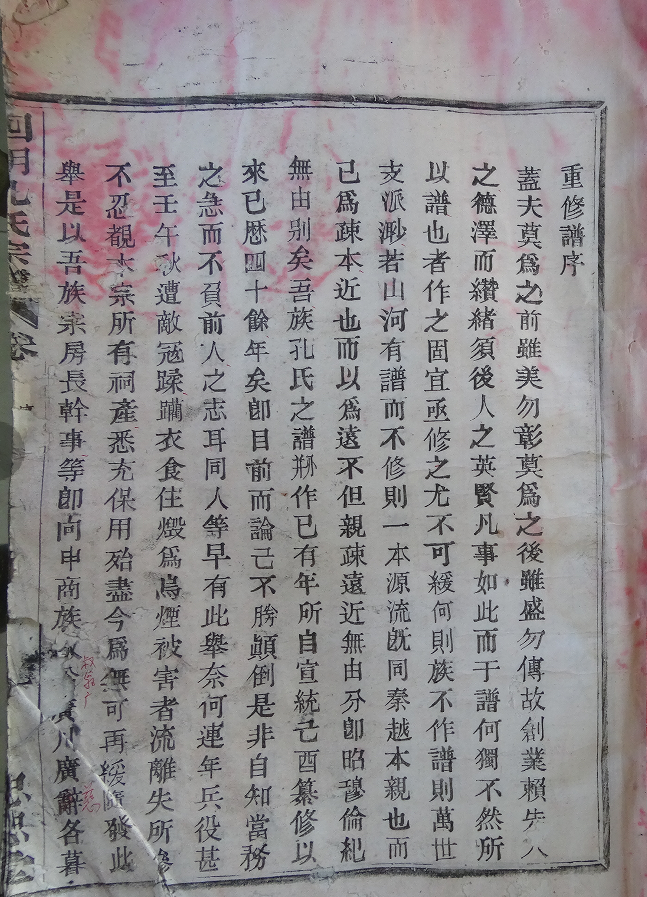 重修譜序
蓋夫莫爲之前雖美勿彰莫爲之後雖盛勿傳故創業賴先人
之德澤而纘緒須後人之英賢凡事如此而于譜何獨不然所
以譜也者作之固宜亟修之尤不可緩何則族不作譜則萬世
支派渺若山河有譜而不修則一本源流旣同秦越本親也而
已爲疎本近也而以爲遠不但親疎遠近無由分卽昭穆倫紀
無由別矣吾族孔氏之譜刱作已有年所自宣統己酉纂修以
來已歷四十餘年矣卽目前而論己不勝顚倒是非自知當務
之急而不負前人之志耳同人等早有此舉奈何連年兵役甚
至壬午秋遭敵寇蹂躪衣食住燬爲烏煙被害者流離失所
不忍覩本宗所有祠產悉充保用殆盡今爲無可再緩發此
舉是以吾族宗房長幹事等卽向申商族廣川廣辭各暮
孔氏宗譜 卷